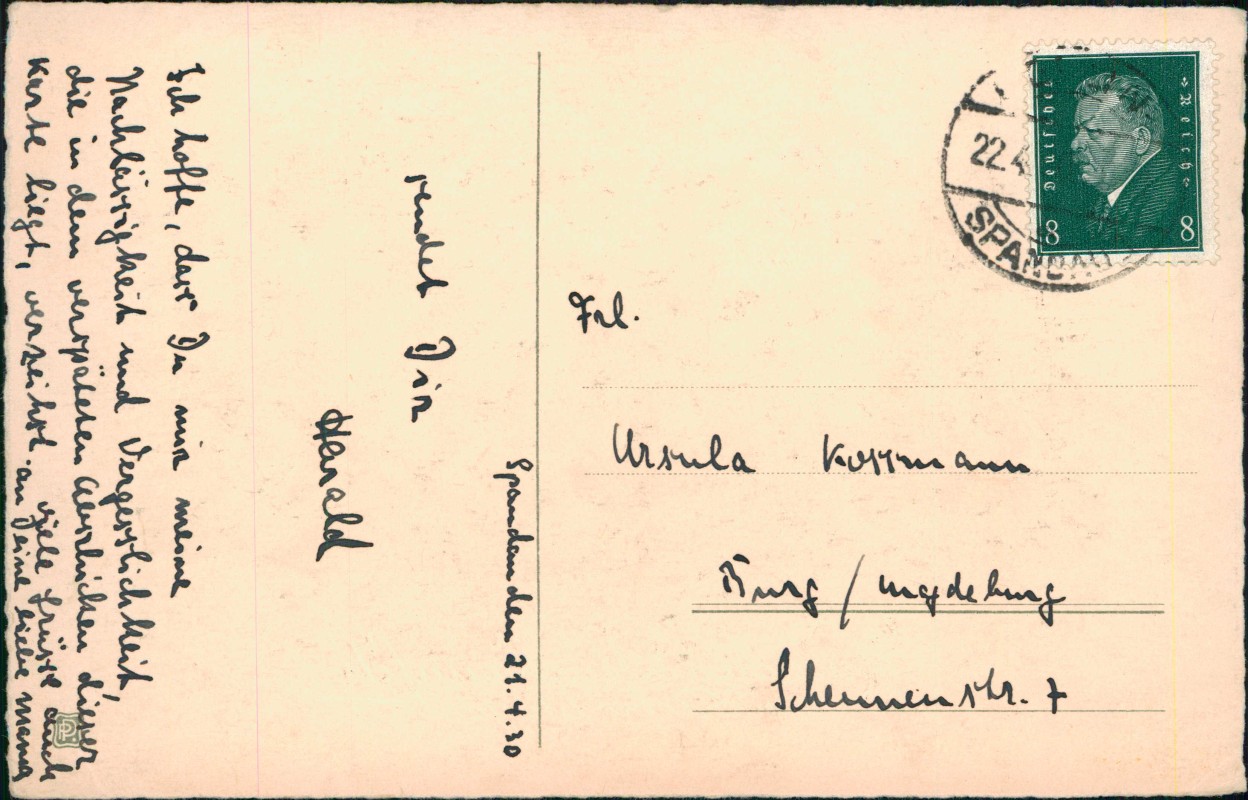 Spandau den 21.4.30
sendet Dir
Harald
Ich hoffe, dass Du mir meine
Nachlässigkeit und Vergesslichkeit
die in dem verspäteten Abschicken dieser
Karte liegt, verzeihst.
viele Grüsse auch
an Deine liebe Mama
Deutsches
Reich
8
8
22.4
SPANDAU
Frl.
Ursula Kossmann
Burg / Magdeburg
Scheunenstr. 7